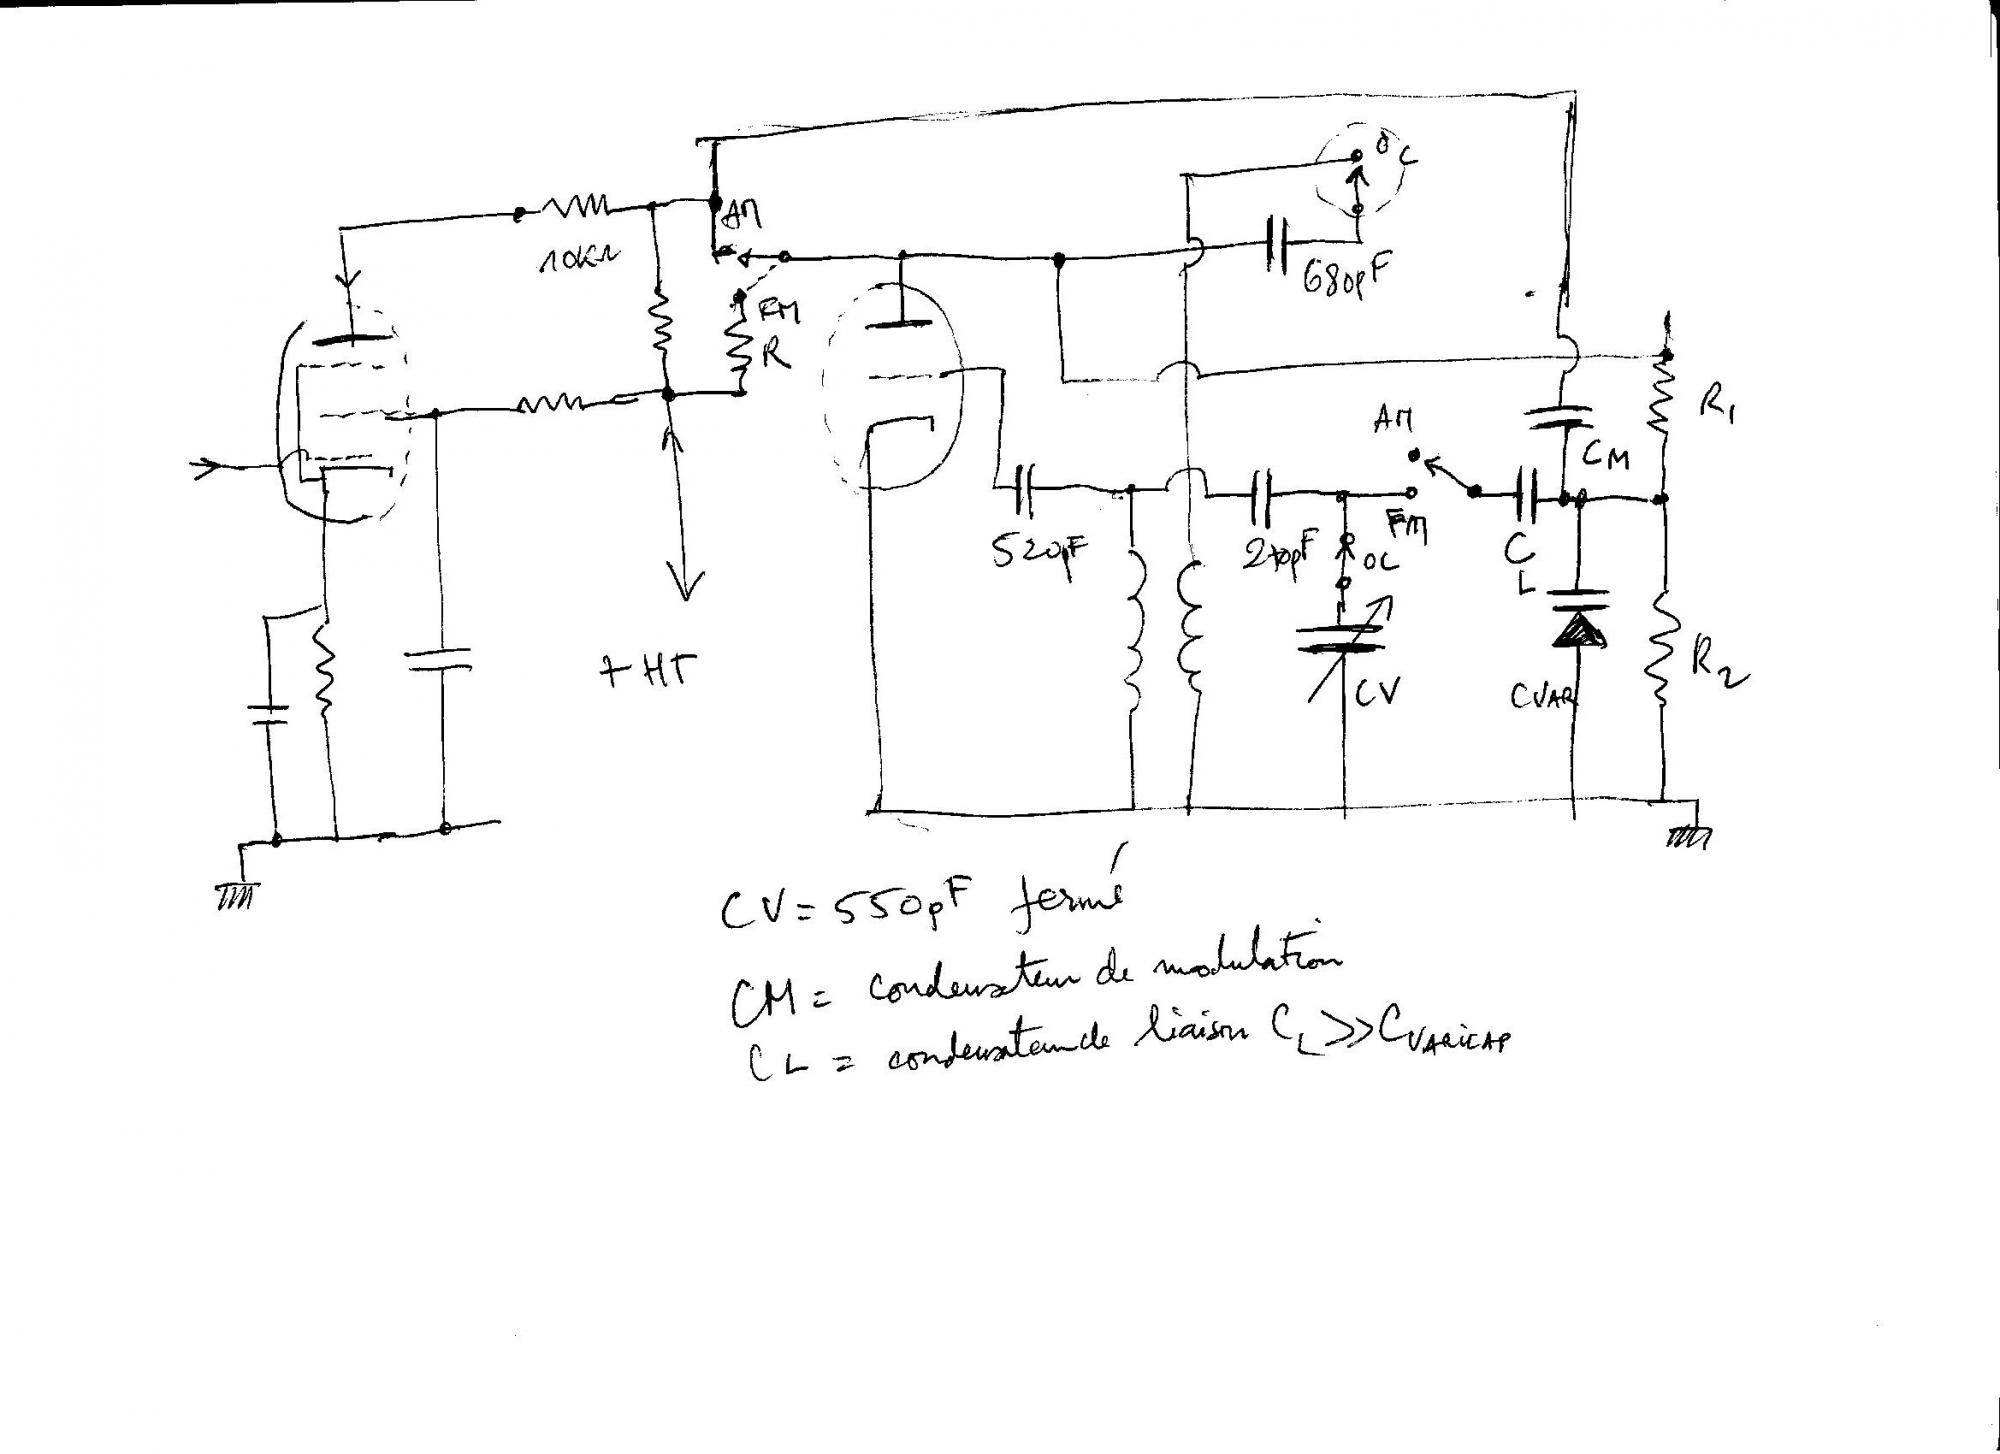 OC
AM
10KΩ
680pF
FM
R
R1
AM
CM
FM
520pF
OC
CL
+ HT
CV
CVAR
R2
CV = 550pF fermé
CM = condensateur de modulation
CL = condensateur de liaison CL >> CVARICAP